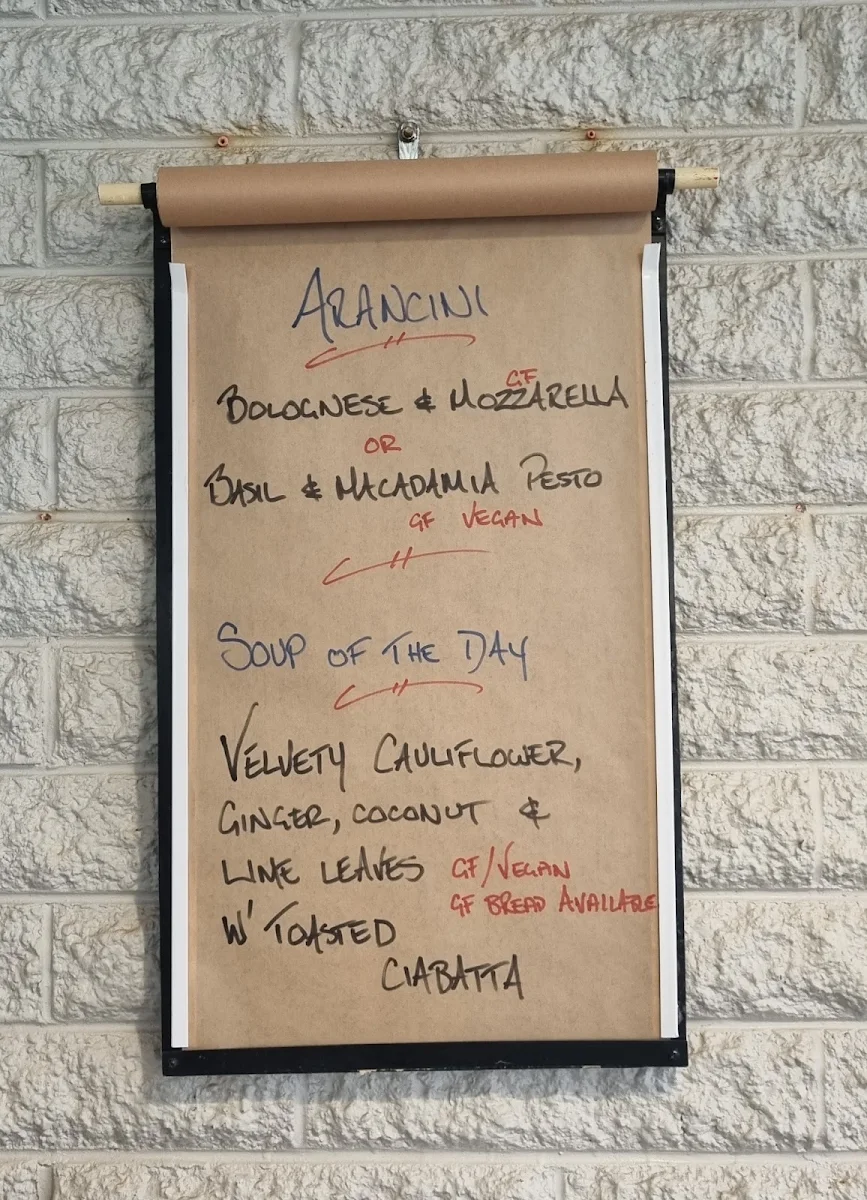 ARANCINI
GF
BOLOGNESE & MOZZARELLA
OR
BASIL & MACADAMIA PESTO
GF VEGAN
SOUP OF THE DAY
VELVETY CAULIFLOWER,
GINGER, COCONUT &
LIME LEAVES GF/VEGAN
GF BREAD AVAILABLE
W' TOASTED
CIABATTA